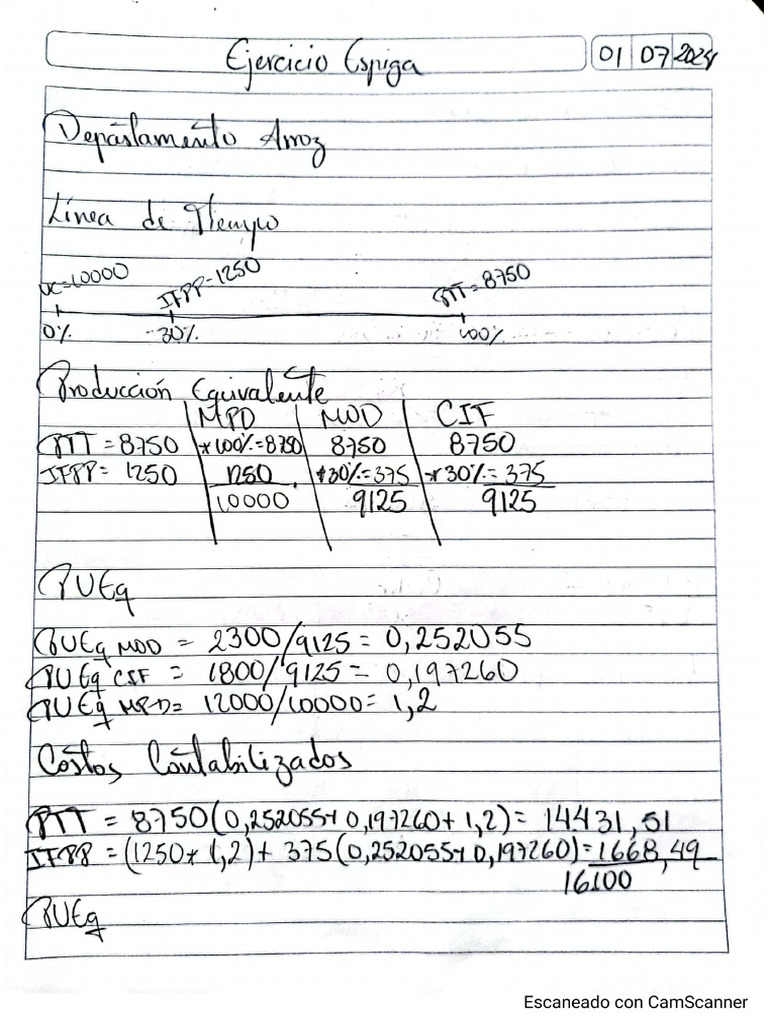 Ejercicio Espiga 01 07 2024
Departamento Arroz
Línea de Tiempo
UC=10000 IFPP=1250 PTT=8750
0% 30% 100%
Producción Equivalente
MPD MOD CIF
PTT = 8750 *100%=8750 8750 8750
IFPP= 1250 1250 *30%=375 *30%=375
10000 9125 9125
PUEq
PUEq MOD = 2300/9125 = 0,252055
PUEq CIF = 1800/9125 = 0,197260
PUEq MPD= 12000/10000= 1,2
Costos Contabilizados
PTT = 8750(0,252055+0,197260+1,2)= 14431,51
IFPP = (1250*1,2)+ 375(0,252055+0,197260)=1668,49
16100
PUEq
Escaneado con CamScanner